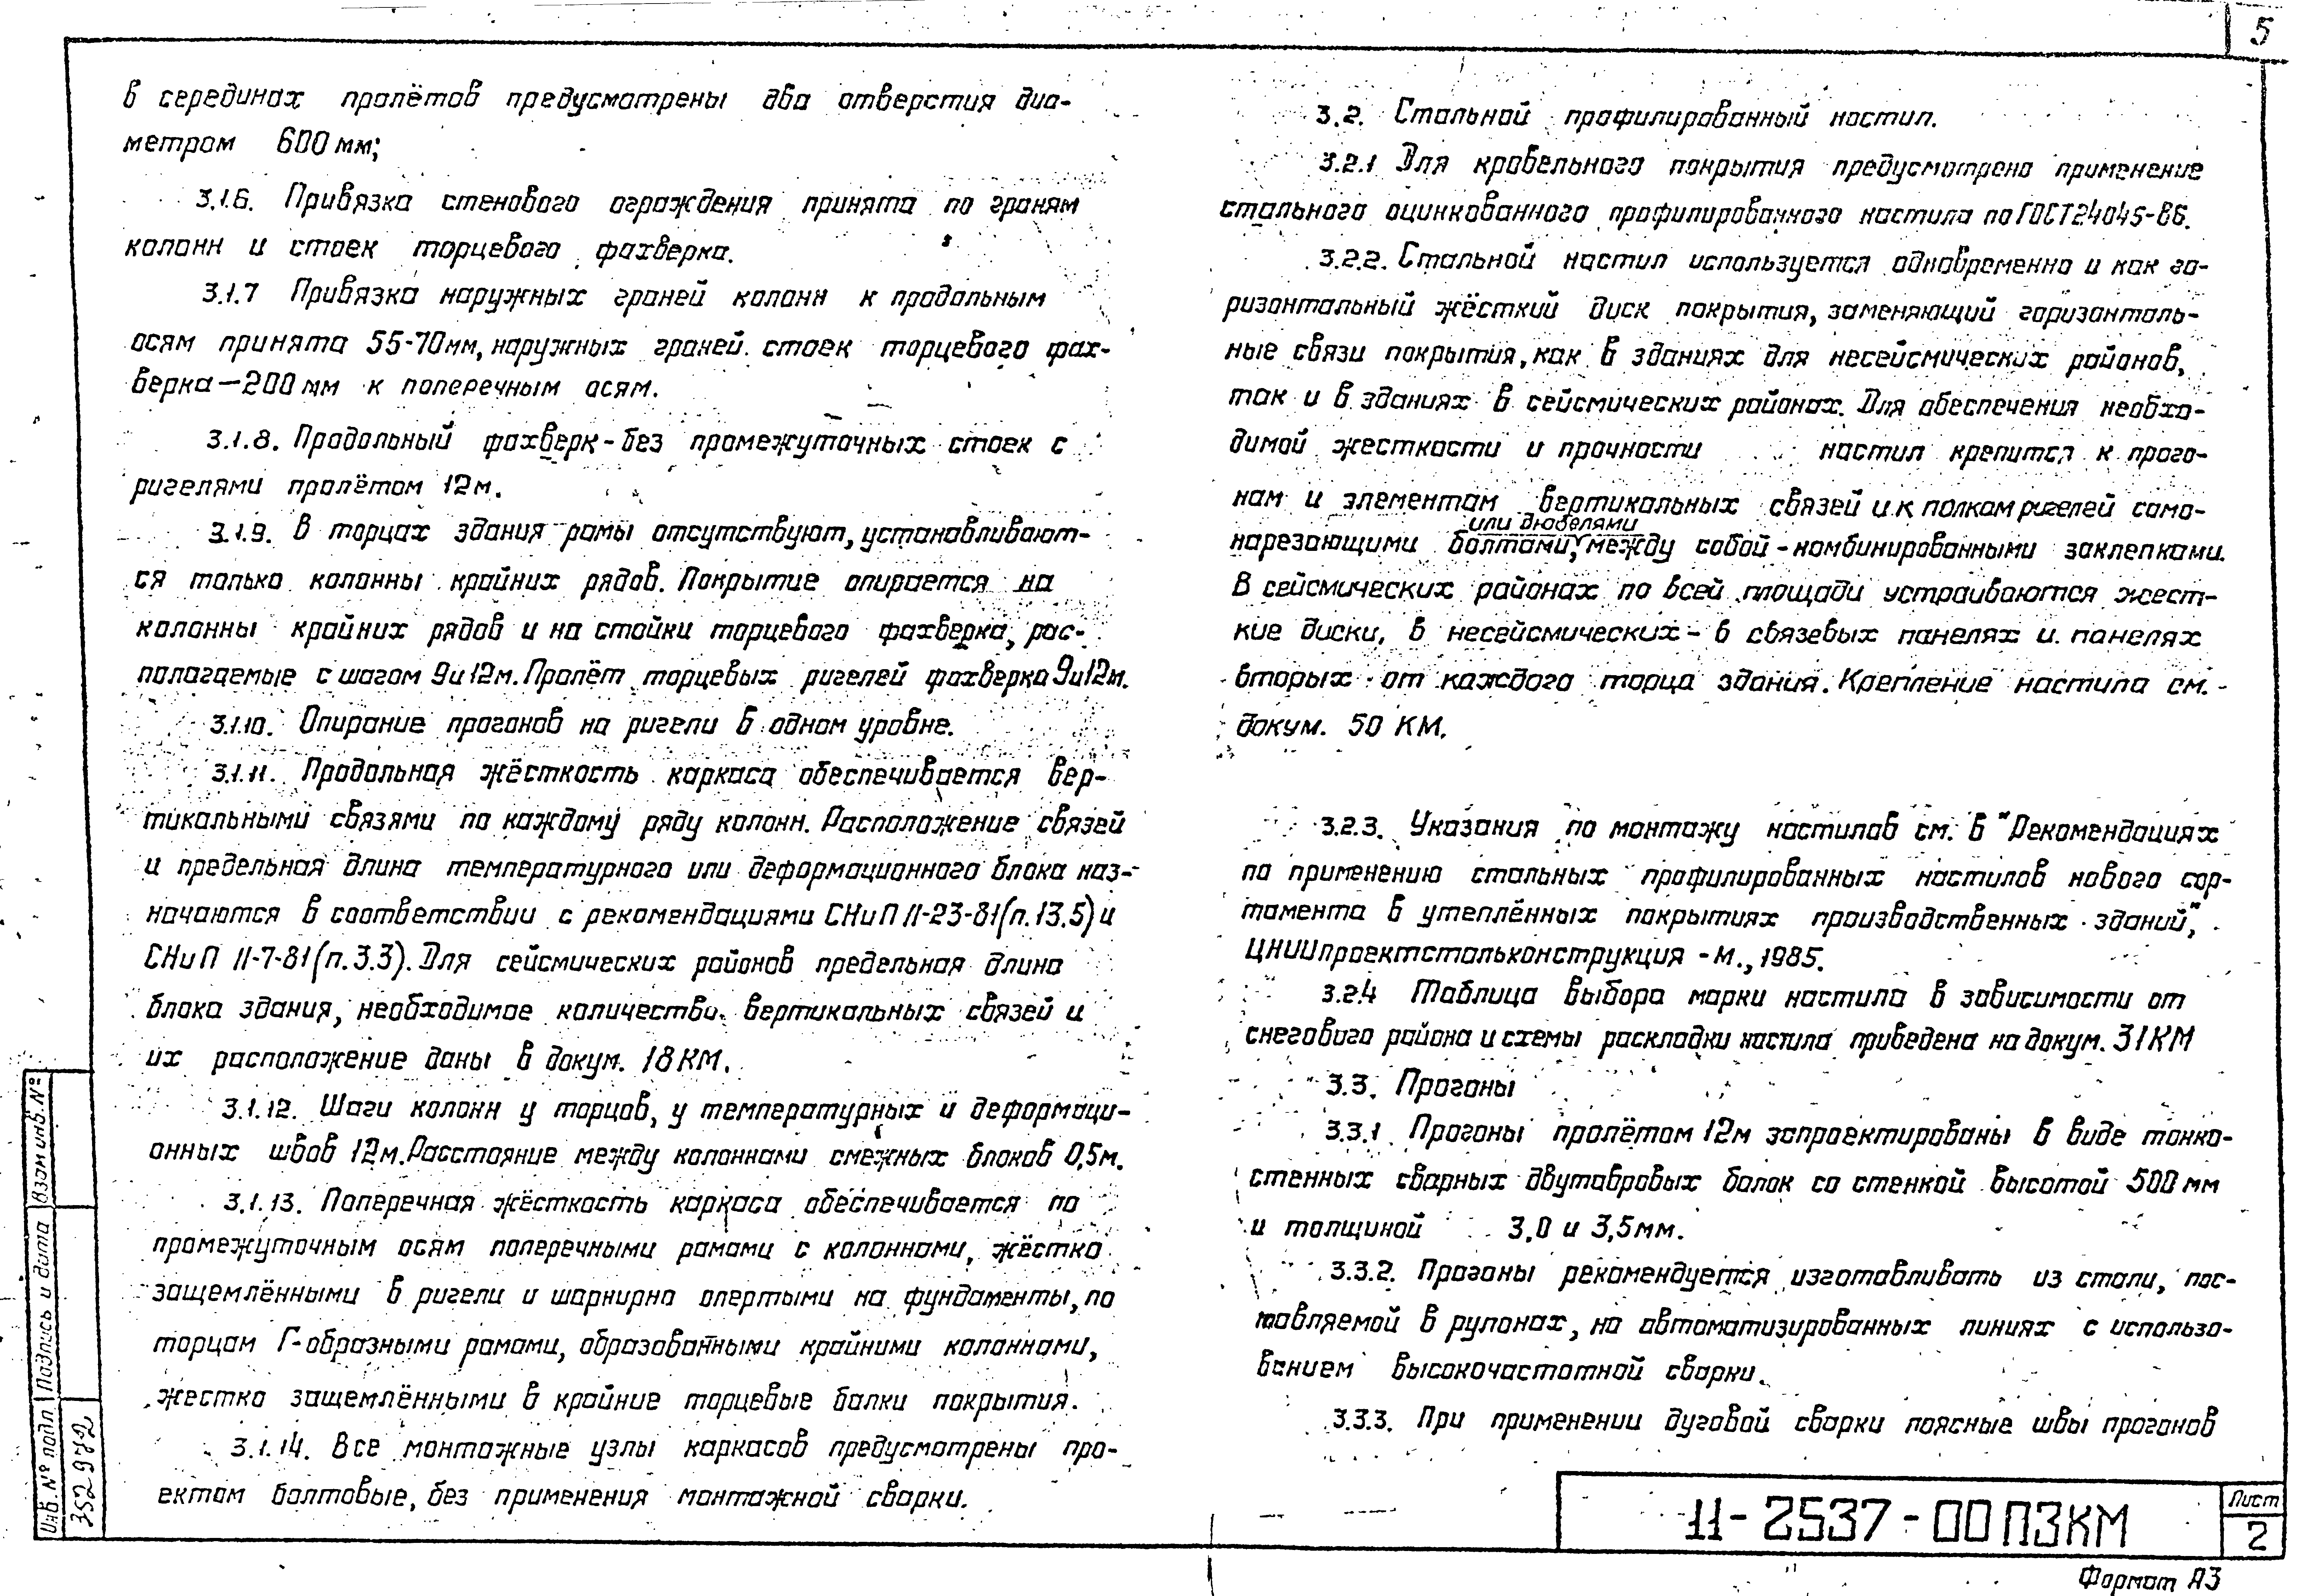 5
в серединах пролётов предусмотрены два отверстия диа-
метром 600 мм;
3.1.6. Привязка стенового ограждения принята по граням
колонн и стоек торцевого фахверка.
3.1.7 Привязка наружных граней колонн к продольным
осям принята 55-70мм, наружных граней стоек торцевого фах-
верка-200 мм к поперечным осям.
3.1.8. Продольный фахверк-без промежуточных стоек с
ригелями пролётом 12м.
3.1.9. В торцах здания рамы отсутствуют, устанавливают-
ся только колонны крайних рядов. Покрытие опирается на
колонны крайних рядов и на стойки торцевого фахверка, рас-
полагаемые с шагом 9и12м. Пролёт торцевых ригелей фахверка 9и12м.
3.1.10. Опирание прогонов на ригели в одном уровне.
3.1.11. Продольная жёсткость каркаса обеспечивается вер-
тикальными связями по каждому ряду колонн. Расположение связей
и предельная длина температурного или деформационного блока наз-
начаются в соответствии с рекомендациями СНиП II-23-81(п.13.5) и
СНиП II-7-81(п.3.3). Для сейсмических районов предельная длина
блока здания, необходимое количество вертикальных связей и
их расположение даны в докум. 18КМ.
3.1.12. Шаги колонн у торцов, у температурных и деформаци-
онных швов 12м. Расстояние между колоннами смежных блоков 0,5м.
3.1.13. Поперечная жёсткость каркаса обеспечивается по
промежуточным осям поперечными рамами с колоннами, жёстко
защемлёнными в ригели и шарнирно опертыми на фундаменты, по
торцам Г-образными рамами, образованными крайними колоннами,
жестко защемлёнными в крайние торцевые балки покрытия.
3.1.14. Все монтажные узлы каркасов предусмотрены про-
ектом болтовые, без применения монтажной сварки.
3.2. Стальной профилированный настил.
3.2.1 Для кровельного покрытия предусмотрено применение
стального оцинкованного профилированного настила по ГОСТ24045-86.
3.2.2. Стальной настил используется одновременно и как го-
ризонтальный жёсткий диск покрытия, заменяющий горизонталь-
ные связи покрытия, как в зданиях для несейсмических районов,
так и в зданиях в сейсмических районах. Для обеспечения необхо-
димой жесткости и прочности настил крепится к прого-
нам и элементам вертикальных связей и к полкам ригелей само-
или дюбелями
нарезающими болтами, между собой-комбинированными заклепками.
В сейсмических районах по всей площади устраиваются жест-
кие диски, в несейсмических-в связевых панелях и панелях
вторых от каждого торца здания. Крепление настила см.
докум. 50 КМ.
3.2.3. Указания по монтажу настилов см. в "Рекомендациях
по применению стальных профилированных настилов нового сор-
тамента в утеплённых покрытиях производственных зданий",
ЦНИИпроектстальконструкция -М., 1985.
3.2.4 Таблица выбора марки настила в зависимости от
снегового района и схемы раскладки настила приведена на докум. 31КМ
3.3. Прогоны
3.3.1 Прогоны пролётом 12м запроектированы в виде тонко-
стенных сварных двутавровых балок со стенкой высотой 500 мм
и толщиной 3,0 и 3,5мм.
3.3.2. Прогоны рекомендуется изготавливать из стали, пос-
тавляемой в рулонах, на автоматизированных линиях с использо-
ванием высокочастотной сварки.
3.3.3. При применении дуговой сварки поясные швы прогонов
Инв. № подл Подпись и дата Взам инв. №
352972
11-2537-00ПЗКМ
Лист
2
Формат А3